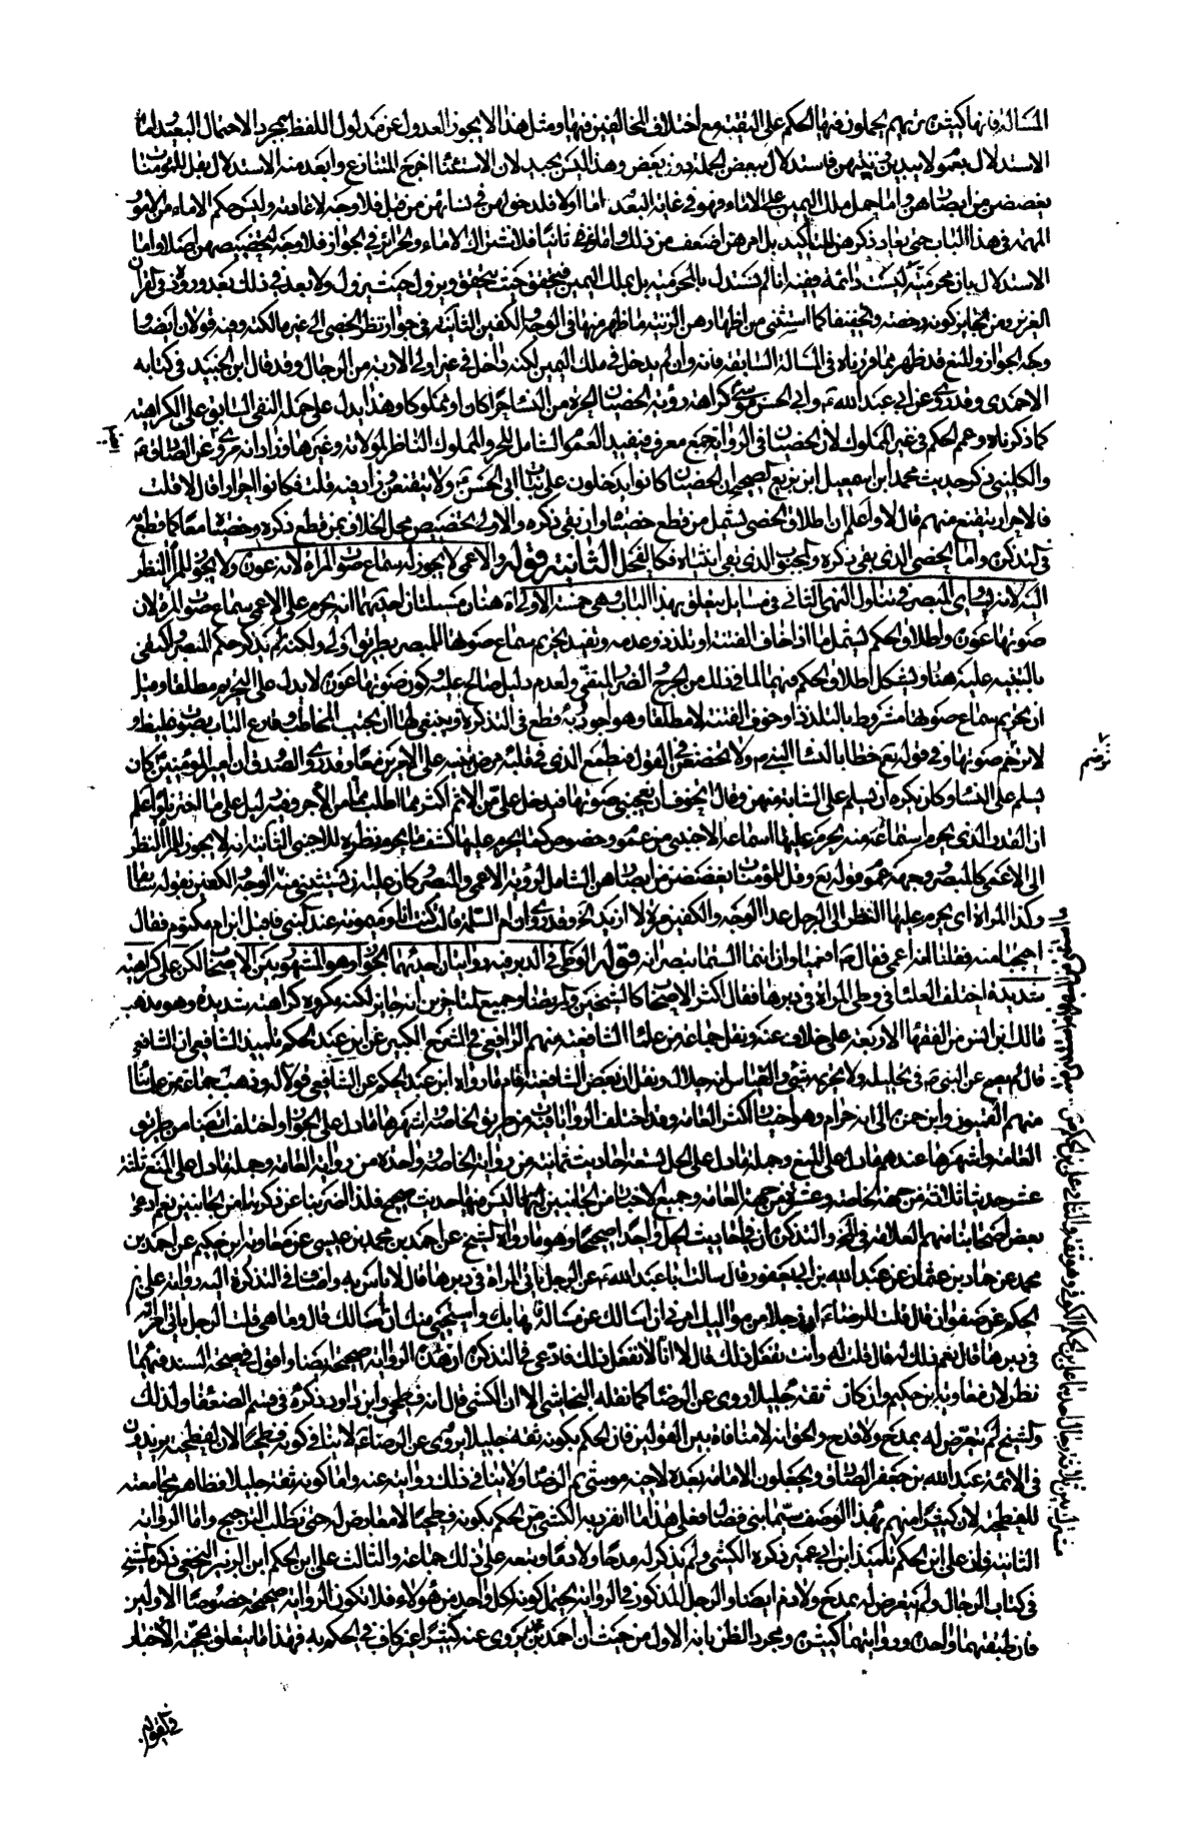 المسألة فإنها كثيرة منهم يحملون فيها الحكم على التقية مع اختلاف المخالفين فيها ومثل هذا لا يجوز العدول عن مدلول اللفظ بمجرد الاحتمال البعيد وأما
الاستدلال بعموم ولا يبدين زينتهن فاستدلال ببعض الجملة دون بعض وهذا ليس بجيد لأن الاستثناء أخرج المتنازع وأبعد منه الاستدلال بقل للمؤمنات
يغضضن من أبصارهن وأما حمل ملك اليمين على الإماء فهو في غاية البعد أما أولا فلدخولهن في نسائهن من قبل فلا وجه لإعادته وليس حكم الإماء من الأمور
المهمة في هذا الباب حتى يعاد ذكرهن للتأكيد بل أمرهن أضعف من ذلك وأما ثانيا فلاشتراك الإماء والحرائر في الجواز فلا وجه لتخصيصهن أصلا وأما
الاستدلال بأن محرميته ليست دائمة ففيه أنا لم نستدل بالمحرمية بل بملك اليمين فيتحقق حيث يتحقق ويزول حيث يزول ولا بعد في ذلك بعد وروده في القرآن
العزيز ومن الجايز كونه رخصة وتخفيفا كما استثنى من إظهارهن الزينة ما ظهر منها في الوجه والكفين الثانية في جواز نظر الخصي إلى غير مالكته وفيه قولان أيضا
وجه الجواز والمنع قد ظهر مما قررناه في المسألة السابقة فإنه وإن لم يدخل في ملك اليمين لكنه داخل في غير أولي الإربة من الرجال وقد قال ابن الجنيد في كتابه
الأحمدي وقد روي عن أبي عبد الله وأبي الحسن موسى كراهة رؤية الخصيان الحرة من النساء حرا كان أو مملوكا وهذا يدل على حمله النفي السابق على الكراهية
كما ذكرناه وعم الحكم في غير المملوك لأن الخصيان في الرواية جمع معرف فيفيد العموم الشامل للحر والمملوك الناظر لمولاته وغيرها
والكليني ذكر حديث محمد بن إسمعيل بن بزيع الصحيح أن الخصيان كانوا يدخلون على بنات أبي الحسن ولا يتقنعن وزاد فيه قلت فكانوا أحرارا قال لا قلت
فالأحرار يتقنع منهم قال لا واعلم أن إطلاق الخصي يشمل من قطع خصيتاه وإن بقي ذكره والأولى تخصيص محل الخلاف بمن قطع ذكره وخصيتاه معا كما قطع به
في التذكرة وأما الخصي الذي بقي ذكره والمجبوب الذي بقي أنثياه فكالفحل الثانية قوله والأعمى لا يجوز له سماع صوت المرأة لأنه عورة ولا يجوز للمرأة النظر
إليه لأنه يساوي المبصر في تناول النهي الثاني في مسائل يتعلق بهذا الباب وهي خمسة الأولى هنا مسئلتان إحديهما أنه يحرم على الأعمى سماع صوت المرأة لأن
صوتها عورة وإطلاق الحكم يشمل ما إذا خاف الفتنة أو تلذذ وعدمه ويفيد تحريم سماع صوتها للمبصر بطريق أولى ولكنه لم يذكر حكم المبصر واكتفى
بالتنبيه عليه هنا ويشكل إطلاق الحكم فيهما لما في ذلك من الحرج والضرر المنفي ولعدم دليل صالح عليه وكون صوتها عورة لا يدل على التحريم مطلقا وقيل
أن تحريم سماع صوتها مشروط بالتلذذ أو خوف الفتنة لا مطلقا وهو أجود وبه قطع في التذكرة وينبغي لها أن تجيب المخاطب وقارع الباب بصوت غليظ و
لا ترخم صوتها وفي قوله تع خطابا لنساء النبي ص ولا تخضعن في القول فيطمع الذي في قلبه مرض تنبيه على الأمرين معا وقد روى الصدوق أن أمير المؤمنين كان
يسلم على النساء وكان يكره أن يسلم على الشابة منهن وقال أتخوف أن تعجبني صوتها فيدخل علي من الإثم أكثر مما أطلب من الأجر وفيه دليل على ما اخترناه واعلم
أن القدر الذي يحرم استماعه منه يحرم عليها إسماعه الأجنبي من عموم وخصوص كما يحرم عليها كشف ما يحرم نظره للأجنبي الثانية أنه لا يجوز للمرأة النظر
إلى الأعمى كالمبصر وجهه عموم قوله تع وقل للمؤمنات يغضضن من أبصارهن الشامل لرؤية الأعمى والمبصر وكان عليه أن يستثني منه الوجه والكفين بقوله سابقا
وكذا المرأة أي يحرم عليها النظر إلى الرجل عدا الوجه والكفين مرة لا أزيد وقد روي أن أم سلمة قالت كنت أنا وميمونة عند النبي فأقبل ابن أم مكتوم فقال
احتجبا منه فقلنا إنه أعمى فقال ص أفعميا وان أنتما ألستما تبصرانه قوله الوطي في الدبر فيه روايتان إحديهما الجواز وهو المشهور بين الأصحاب لكن على كراهية
شديدة اختلف العلماء في وطي المرأة في دبرها فقال أكثر الأصحاب كالشيخين والمرتضى وجميع المتأخرين أنه جايز لكنه مكروه كراهية شديدة وهو مذهب
مالك بن أنس من الفقهاء الأربعة على خلاف عنه ونقل جماعة من علماء الشافعية منهم الرافعي في الشرح الكبير عن ابن عبد الحكم تلميذ الشافعي أن الشافعي
قال لم يصح عن النبي ص في تحليله ولا تحريمه شيء والقياس أنه حلال ونقل أن بعض الشافعية أقام ما رواه ابن عبد الحكم عن الشافعي قولا له وذهب جماعة من علمائنا
منهم القميون وابن حمزة إلى أنه حرام وهو اختيار أكثر العامة وقد اختلف الروايات فيه من طريق الخاصة أشهرها ما دل على الجواز واختلفت أيضا من طريق
العامة وأشهرها عندهم ما دل على المنع وجملة ما دل على الحل تسعة أحاديث ثمانية من رواية الخاصة وواحدة من رواية العامة وجملة ما دل على المنع ثلثة
عشر حديثا ثلاثة من جهة الخاصة وعشرة من جهة العامة وجميع الأخبار من الجانبين ليس فيها حديث صحيح فلذا أضربنا عن ذكرها من الجانبين نعم ادعى
بعض أصحابنا منهم العلامة في المخ والتذكرة أن في أحاديث الحل واحدا صحيحا وهو ما رواه الشيخ عن أحمد بن محمد بن عيسى عن معاوية بن حكيم عن أحمد بن
محمد عن حماد بن عثمان عن عبد الله بن أبي يعفور قال سألت أبا عبد الله ع عن الرجل يأتي المرأة في دبرها قال لا بأس به وأضاف في التذكرة إليه رواية علي بن
الحكم عن صفوان قال قلت للرضا ع إن رجلا من مواليك أمرني أن أسألك عن مسألة يهابك واستحيى منك أن يسألك قال وما هي قلت الرجل يأتي امرأته
في دبرها قال نعم ذلك له قال قلت له وأنت تفعل ذلك قال لا إنا لا نفعل ذلك فادعى في التذكرة أن هذه الرواية صحيحة أيضا وأقول في صحة السند فيهما
نظر لأن معاوية بن حكيم وإن كان ثقة جليلا روى عن الرضا كما نقله النجاشي إلا أن الكشي قال إنه فطحي وابن داود ذكره في قسم الضعفاء ولذلك
والشيخ لم يتعرض له بمدح ولا قدح والحق أنه لا منافاة بين القولين فإن الحكم بكونه ثقة جليلا يروي عن الرضا ع لا ينافي كونه فطحيا لأن الفطحية يزيدون
في الأئمة عبد الله بن جعفر الصادق ويجعلون الإمامة بعده لأخيه موسى ثم الرضا ولا ينافي ذلك روايته عنه وأما كونه ثقة جليلا فظاهر مجامعته
للفطحية لأن كثيرا منهم بهذا الوصف سيما بني فضال فعلى هذا ما انفرد به الكشي من الحكم بكونه فطحيا لا معارض له حتى يطلب الترجيح وأما الرواية
الثانية فإن علي بن الحكم تلميذ ابن أبي عمير ذكره الكشي ولم يذكر له مدحا ولا ذما وتبعه على ذلك جماعة والثالث علي بن الحكم ابن الزبير النخعي ذكره الشيخ
في كتاب الرجال ولم يتعرض له بمدح ولا ذم أيضا والرجل المذكور في الرواية يحتمل كونه كل واحد من هؤلاء فلا تكون الرواية صحيحة خصوصا الأولين
فإن طبقتهما واحدة وروايتهما كثيرة ومجرد الظن بأنه الأول من حيث أن أحمد بن محمد يروي عنه كثيرا غير كاف في الحكم به فهذا ما يتعلق بحجية الأخبار